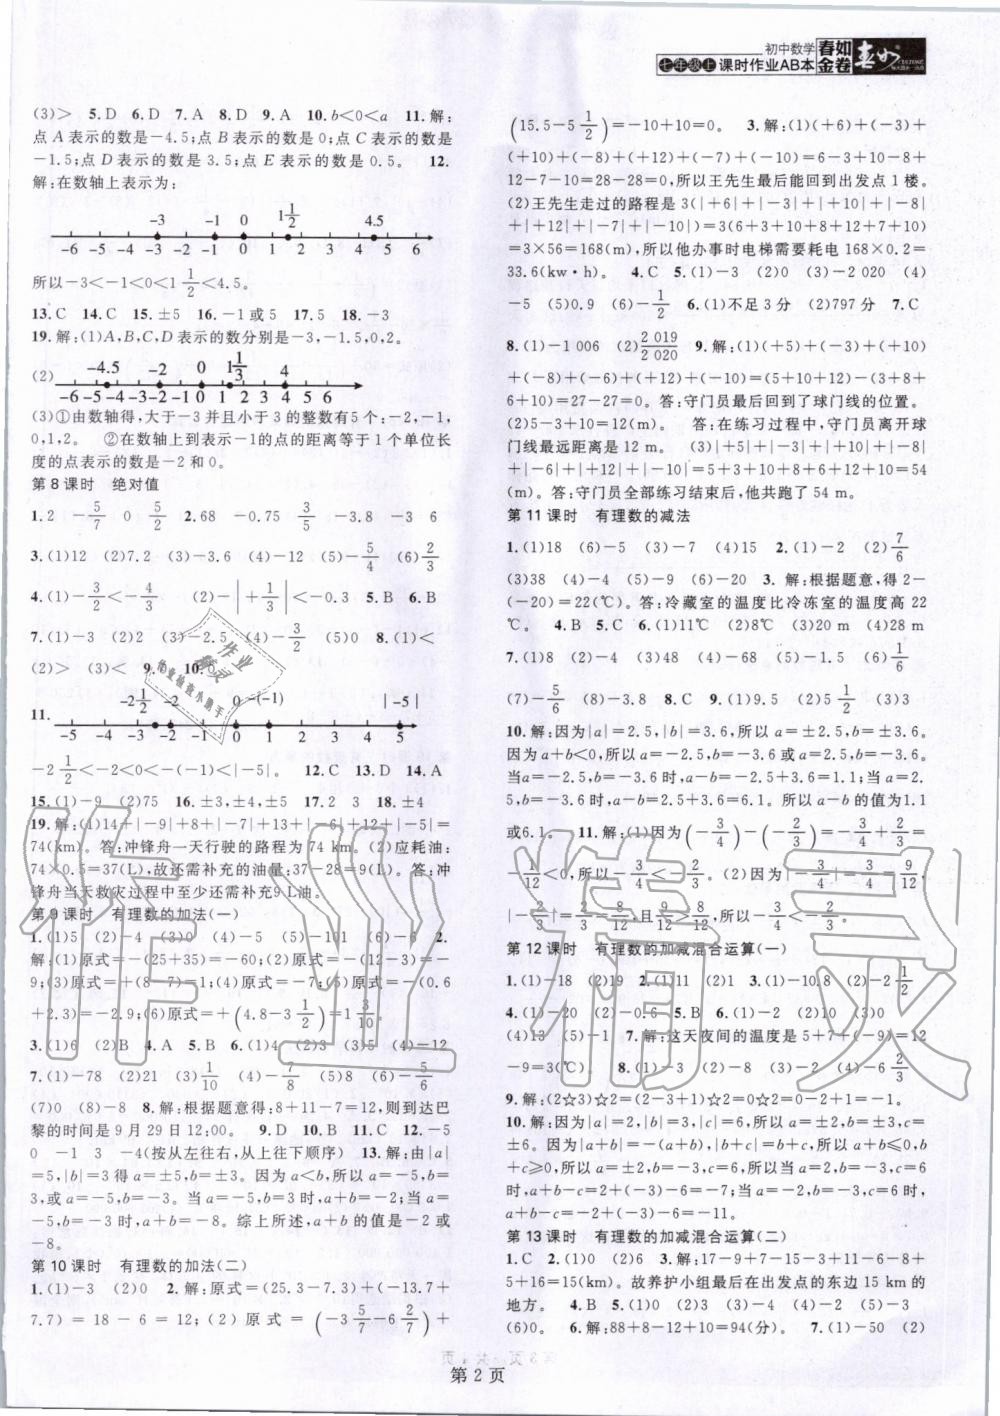 初中数学
七年级上 课时作业AB本
春如金卷
(3)> 5.D 6.D 7.A 8.D 9.A 10.b<0<a 11.解:
点A表示的数是-4.5;点B表示的数是0;点C表示的数是
-1.5;点D表示的数是3.5;点E表示的数是0.5。 12.
解:在数轴上表示为:
-3 -1 0 1 1/2 4.5
-6 -5 -4 -3 -2 -1 0 1 2 3 4 5 6
所以-3<-1<0<1 1/2<4.5。
13.C 14.C 15.±5 16.-1或5 17.5 18.-3
19.解:(1)A,B,C,D表示的数分别是-3,-1.5,0,2。
(2) -4.5 -2 0 1 1/3 4
-6 -5 -4 -3 -2 -1 0 1 2 3 4 5 6
(3)①由数轴得,大于-3并且小于3的整数有5个:-2,-1,
0,1,2。 ②在数轴上到表示-1的点的距离等于1个单位长
度的点表示的数是-2和0。
第8课时 绝对值
1.2 -5/7 0 5/2 2.68 -0.75 3/5 -3.8 -3 6
3.(1)12 (2)7.2 (3)-3.6 (4)-12 (5)-5/4 (6)2/3
4.(1)-3/2<-4/3 (2)-|+1/3|<-0.3 5.B 6.B
7.(1)-3 (2)2 (3)-2.5 (4)-3/2 (5)0 8.(1)<
(2)> (3)< 9. 10.
11. -2 1/2 -2 0 -(-1) |-5|
-5 -4 -3 -2 -1 0 1 2 3 4 5
-2 1/2<-2<0<-(-1)<|-5|。 12.C 13.D 14.A
15.(1)-9 (2)75 16.±3,±4,±5 17.2 3 18.±4
19.解:(1)14+|-9|+8+|-7|+13+|-6|+12+|-5|=
74(km)。答:冲锋舟一天行驶的路程为74 km。(2)应耗油:
74×0.5=37(L),故还需补充的油量:37-28=9(L)。答:冲
锋舟当天救灾过程中至少还需补充9 L油。
第9课时 有理数的加法(一)
1.(1)5 (2)-4 (3)0 (4)-5 (5)-101 (6)-6 2.
解:(1)原式=-(25+35)=-60;(2)原式=-(17-8)=-
9;(3)原式=+(8-7)=1;(4)原式=-7;(5)原式=-(0.6
+2.3)=-2.9;(6)原式=+(4.8-3 1/2)=1 3/10。
3.(1)6 (2)B 4.A 5.B 6.(1)4 (2)3 (3)5 (4)-12
7.(1)-78 (2)21 (3)1/10 (4)-7/8 (5)8 (6)-5/6
(7)0 (8)-8 8.解:根据题意得:8+11-7=12,则到达巴
黎的时间是9月29日12:00。 9.D 10.B 11.C 12.-5
0 -1 3 -4(按从左往右,从上往下顺序) 13.解:由|a|
=5,|b|=3得a=±5,b=±3。因为a<b,所以a=-5,b=
3,或a=-5,b=-3。当a=-5,b=3时,a+b=-2;当a=
-5,b=-3时,a+b=-8。综上所述,a+b的值是-2或
-8。
第10课时 有理数的加法(二)
1.(1)-3 (2)0 2.解:原式=(25.3-7.3)+(-13.7+
7.7)=18-6=12;(2)原式=(-3 5/7-6 2/7)+
(15.5-5 1/2)=-10+10=0。 3.解:(1)(+6)+(-3)+
(+10)+(-8)+(+12)+(-7)+(-10)=6-3+10-8+
12-7-10=28-28=0,所以王先生最后能回到出发点1楼。
(2)王先生走过的路程是3(|+6|+|-3|+|+10|+|-8|
+|+12|+|-7|+|-10|)=3(6+3+10+8+12+7+10)=
3×56=168(m),所以他办事时电梯需要耗电168×0.2=
33.6(kw·h)。 4.C 5.(1)-3 (2)0 (3)-2 020 (4)
-5 (5)0.9 (6)-1/2 6.(1)不足3分 (2)797分 7.C
8.(1)-1 006 (2)2 019/2 020 9.解:(1)(+5)+(-3)+(+10)
+(-8)+(-6)+(+12)+(-10)=(5+10+12)-(3+8+
6+10)=27-27=0。答:守门员最后回到了球门线的位置。
(2)5-3+10=12(m)。 答:在练习过程中,守门员离开球
门线最远距离是12 m。 (3)|+5|+|-3|+|+10|+|-8|
+|-6|+|+12|+|-10|=5+3+10+8+6+12+10=54
(m)。答:守门员全部练习结束后,他共跑了54 m。
第11课时 有理数的减法
1.(1)18 (6)-5 (3)-7 (4)15 2.(1)-2 (2)7/6
(3)38 (4)-4 (5)-9 (6)-20 3.解:根据题意,得2-
(-20)=22(℃)。答:冷藏室的温度比冷冻室的温度高22
℃。 4.B 5.C 6.(1)11℃ (2)8℃ (3)20 m (4)28 m
7.(1)8 (2)-4 (3)48 (4)-68 (5)-1.5 (6)1/6
(7)-5/6 (8)-3.8 8.C 9.(1)9.5 (2)5 1/2 (3)3
10.解:因为|a|=2.5,|b|=3.6,所以a=±2.5,b=±3.6。
因为a+b<0,所以a=-2.5,b=-3.6或a=2.5,b=-3.6。
当a=-2.5,b=-3.6时,a-b=-2.5+3.6=1.1。当a=2.
5,b=-3.6时,a-b=2.5+3.6=6.1。所以a-b的值为1.1
或6.1。 11.解:(1)因为(-3/4)-(-2/3)=-3/4+2/3=
-1/12<0,所以-3/4<-2/3。 (2)因为|-3/4|=3/4=9/12,
|-2/3|=2/3=8/12,且9/12>8/12,所以-3/4<-2/3。
第12课时 有理数的加减混合运算(一)
1.(1)-18 (2)19 2.(1)11 (2)1 3.(1)-10.8 (2)-2 1/2
4.(1)-20 (2)-0.6 5.B 6.(1)-2 (2)10 (3)0
(4)13 (5)-1 7.解:这天夜间的温度是5+7+(-9)=12
-9=3(℃) 8.(1)-3 (2)-1 (3)-2 (4)-6 2/3
9.解:(2☆3)☆2=(2-3+1)☆2=0☆2=0-2+1=-1。
10.解:因为|a|=2,|b|=3,|c|=6,所以a=±2,b=±3,c=
±6。因为|a+b|=-(a+b),|b+c|=b+c,所以a+b≤0,b
+c≥0,所以a=±2,b=-3,c=6,所以当a=2,b=-3,c=6
时,a+b-c=2+(-3)-6=-7;当a=-2,b=-3,c=6时,
a+b-c=-2+(-3)-6=-11。
第13课时 有理数的加减混合运算(二)
1.C 2.(1)0 (2)6 3.解:17-9+7-15-3+11-6-8+
5+16=15(km)。故养护小组最后在出发点的东边15 km的
地方。 4.B 5.(1)0 (2)3 (3)-4 (4)-2 (5)-2
(6)0。 6.解:88+8-12+10=94(分)。 7.(1)-50 (2)
第2页
作业精灵